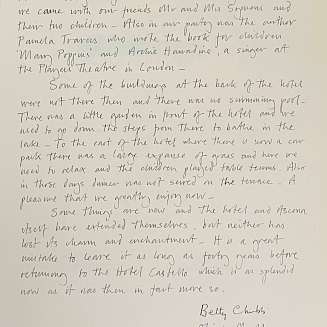 we came with our friends Mr and Mrs Simmons and
their two children - Also in our party was the author
Pamela Travers who wrote the book for children
'Mary Poppins' and Archie Harradine, a singer at
the Players Theatre in London -
Some of the buildings at the back of the hotel
were not there then and there was no swimming pool -
There was a little garden in front of the hotel and we
used to go down the steps from there to bathe in the
lake - To the east of the hotel where there is now a car
park there was a large expanse of grass and here we
used to relax and the children played table tennis. Also
in those days dinner was not served on the terrace - A
pleasure that we greatly enjoy now -
Some things are new and the hotel and Ascona
itself have extended themselves, but neither has
lost its charm and enchantment - It is a great
mistake to leave it as long as forty years before
returning to the Hotel Castello which is as splendid
now as it was then in fact more so.
Betty Chubb